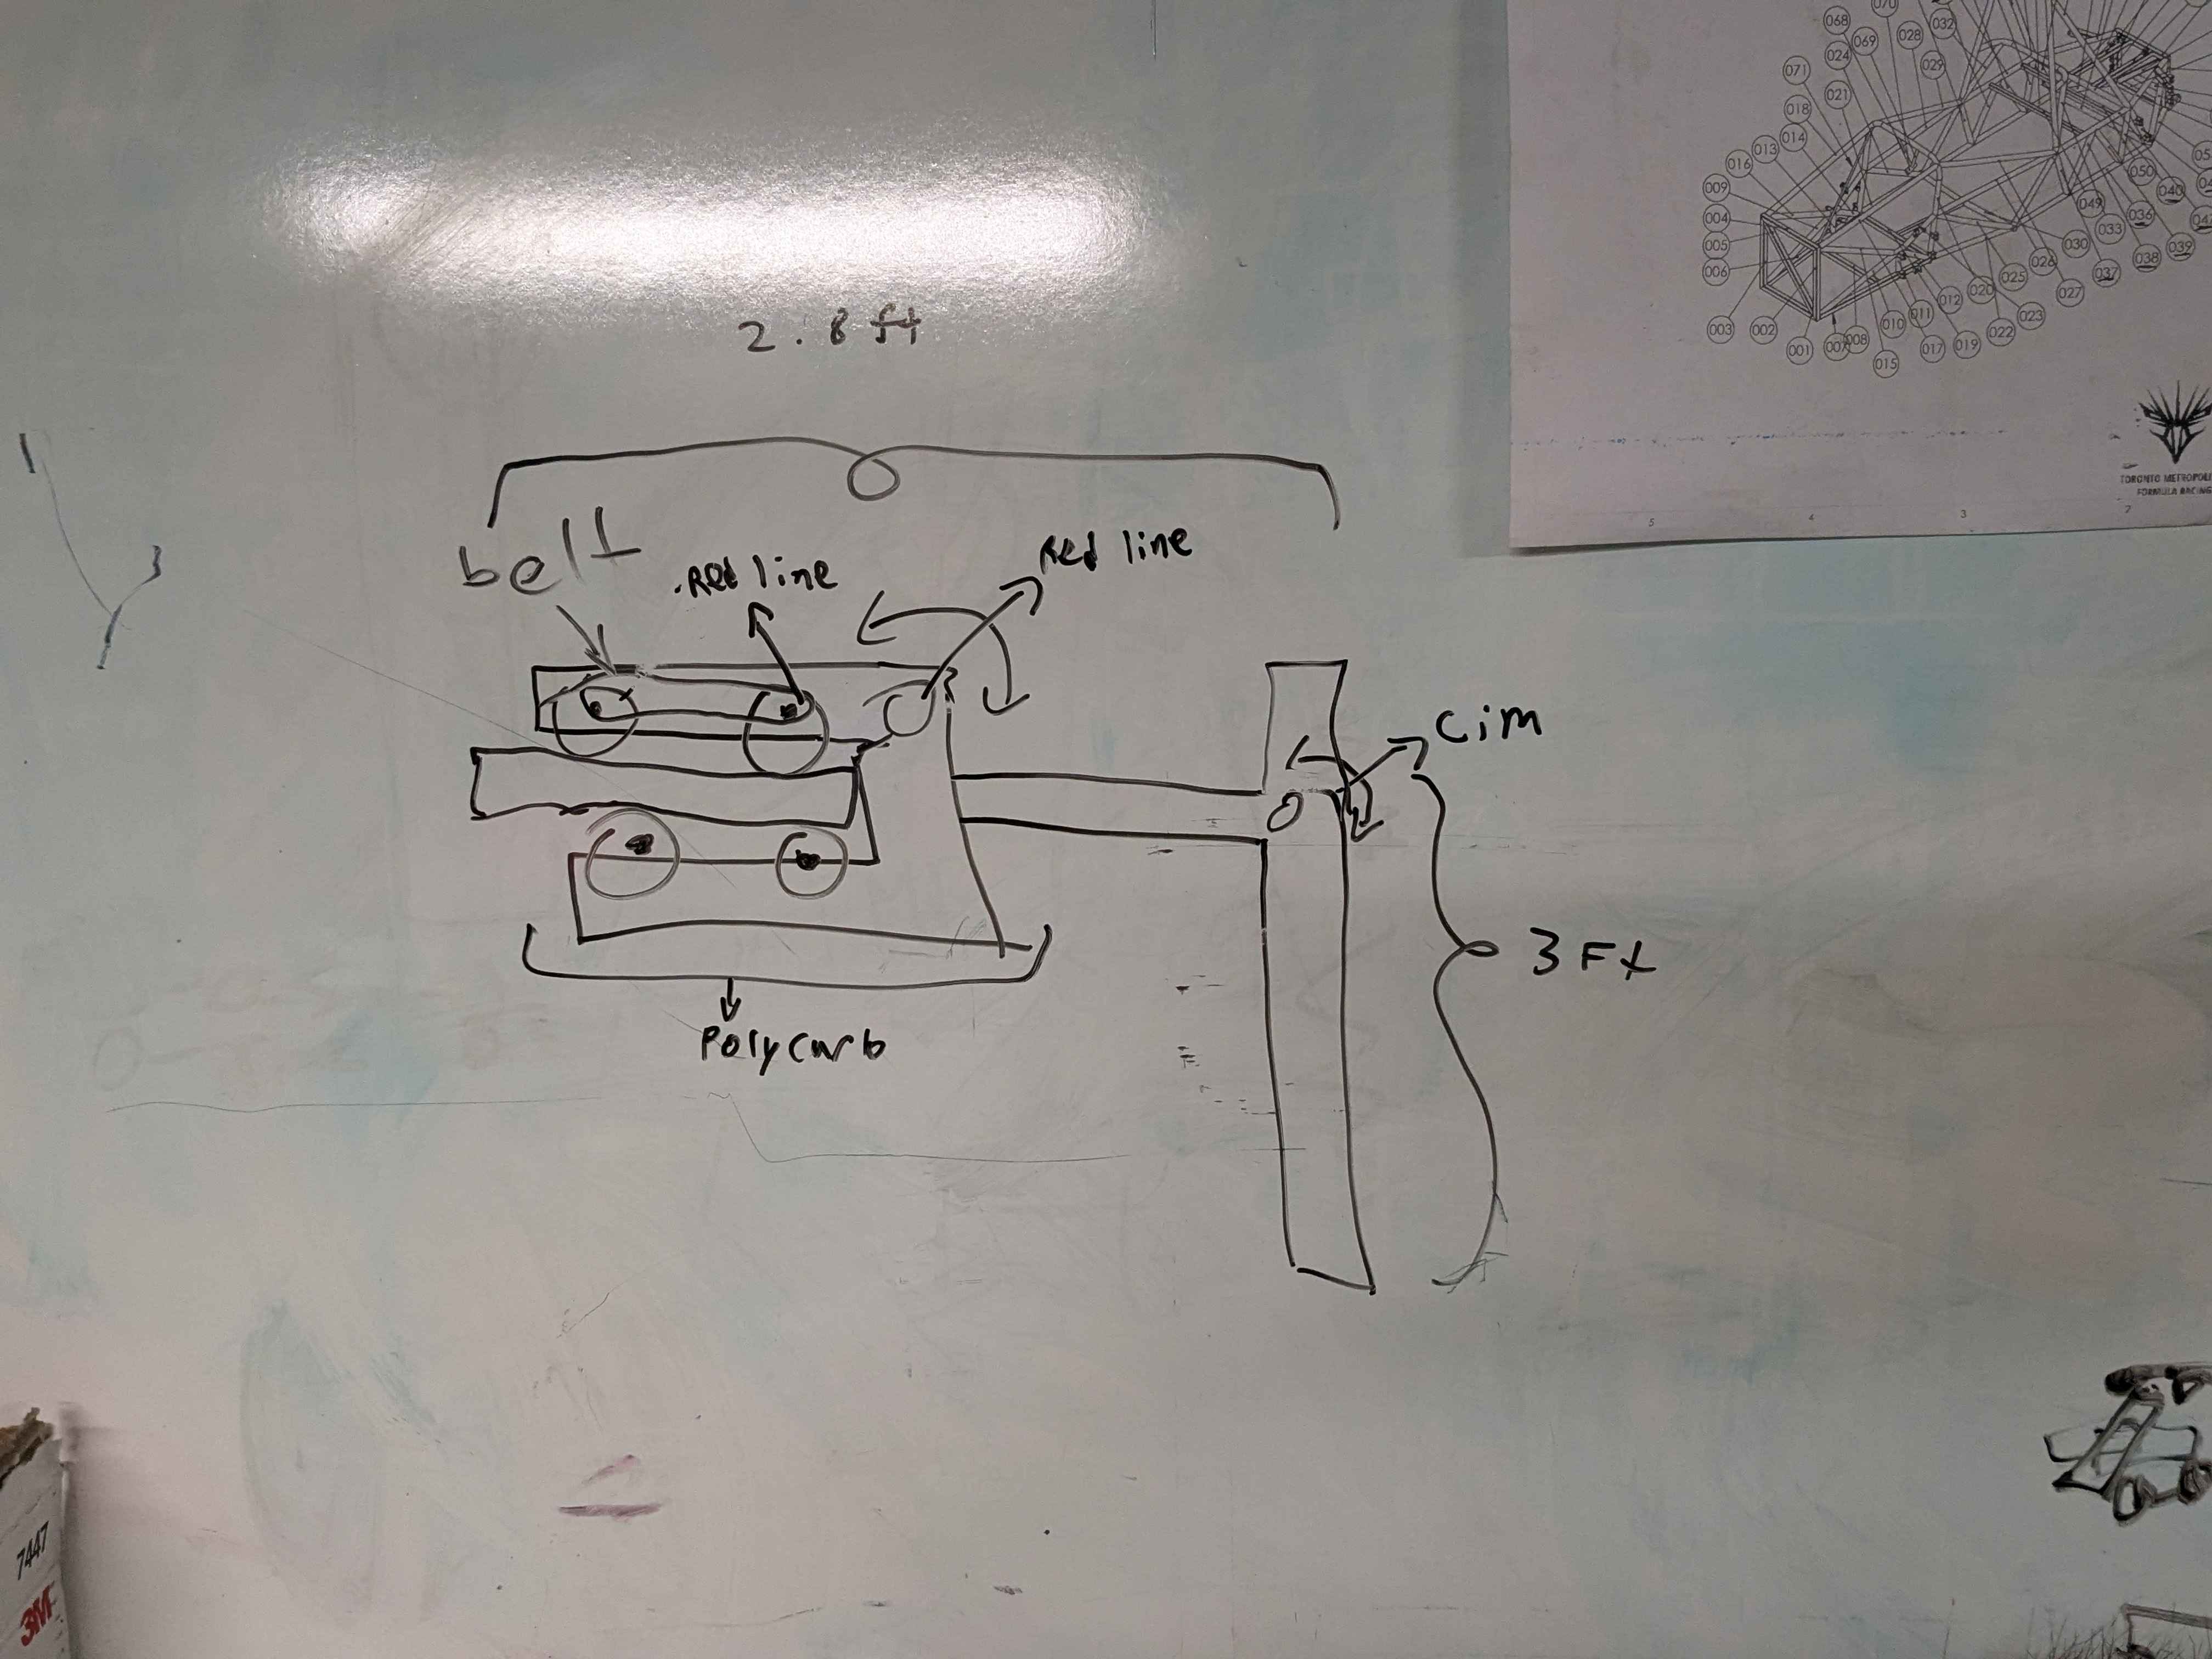 2.8 ft
belt
Red line
Red line
Cim
3 Ft
Polycarb
070
068
032
028
069
024
029
071
021
018
014
013
016
009
004
005
006
003
002
001
007
008
015
010
011
017
012
019
020
022
025
023
026
027
030
037
033
038
049
036
039
050
040
5
4
3
TORONTO METROPOLI
FORMULA RACING
7447
3M